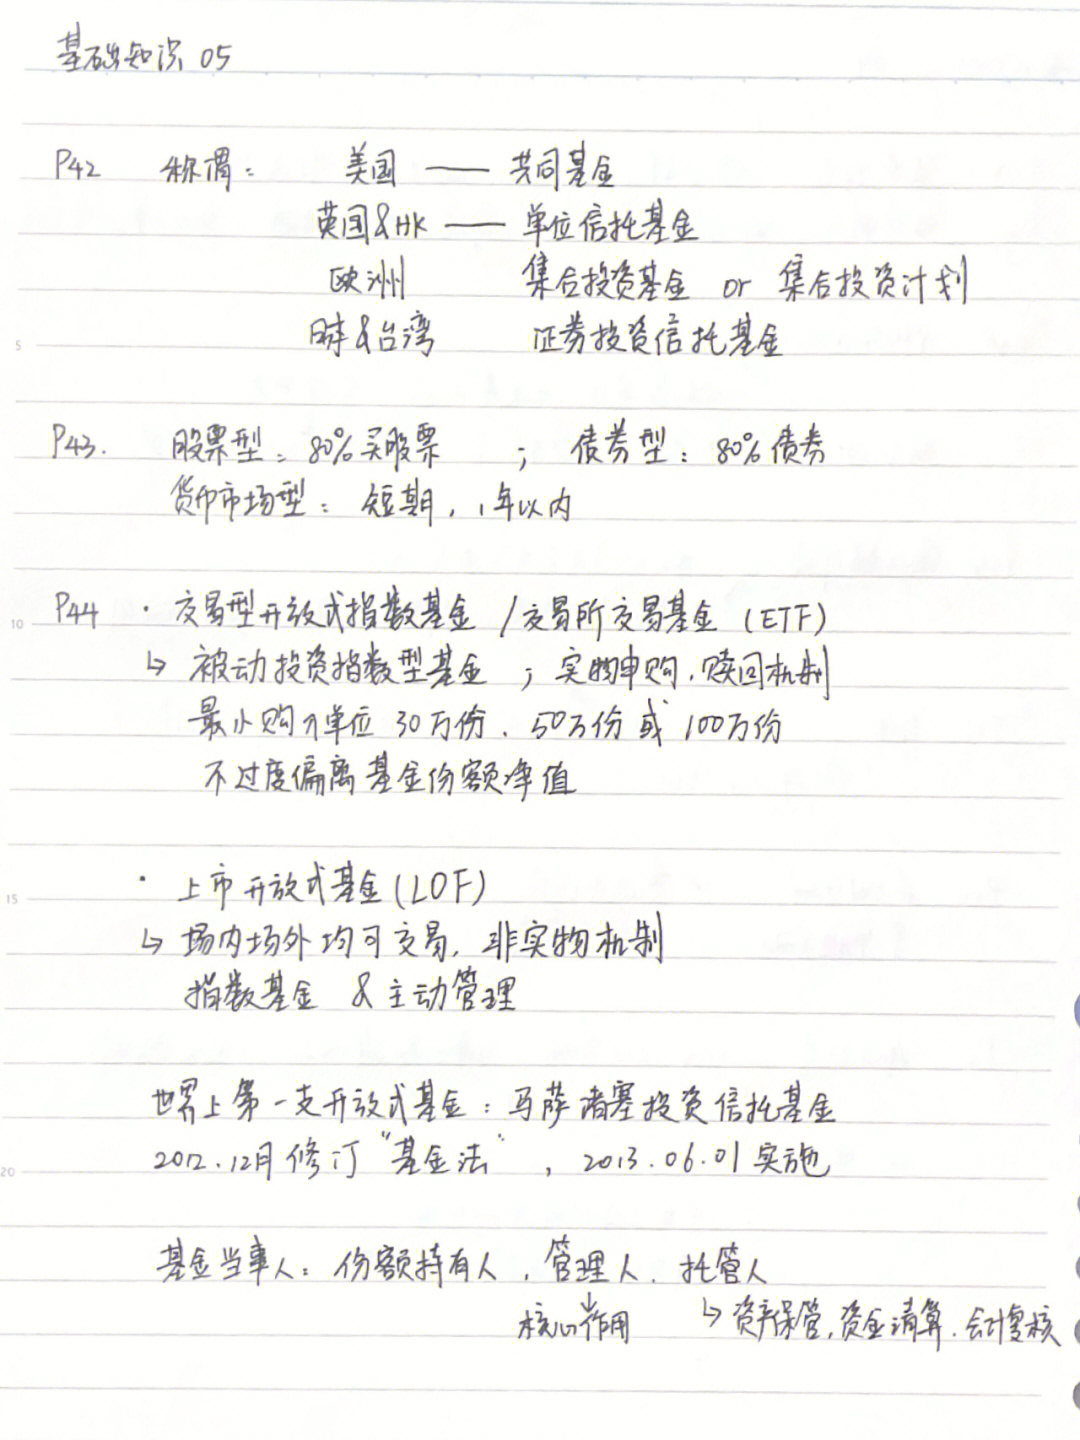 基础知识 05
P42 称谓： 美国 —— 共同基金
英国&HK —— 单位信托基金
欧洲 集合投资基金 or 集合投资计划
日本&台湾 证券投资信托基金
P43. 股票型：80%买股票 ； 债券型：80%债券
货币市场型：短期，1年以内
P44 · 交易型开放式指数基金 / 交易所交易基金 (ETF)
↳ 被动投资指数型基金 ；实物申购、赎回机制
最小购入单位 30万份、50万份或 100万份
不过度偏离基金份额净值
· 上市开放式基金(LOF)
↳ 场内场外均可交易，非实物机制
指数基金 & 主动管理
世界上第一支开放式基金：马萨诸塞投资信托基金
2012.12月修订“基金法”，2013.06.01实施
基金当事人：份额持有人、管理人、托管人
↓
核心作用 ↳ 资产保管，资金清算、会计复核
5
10
15
20